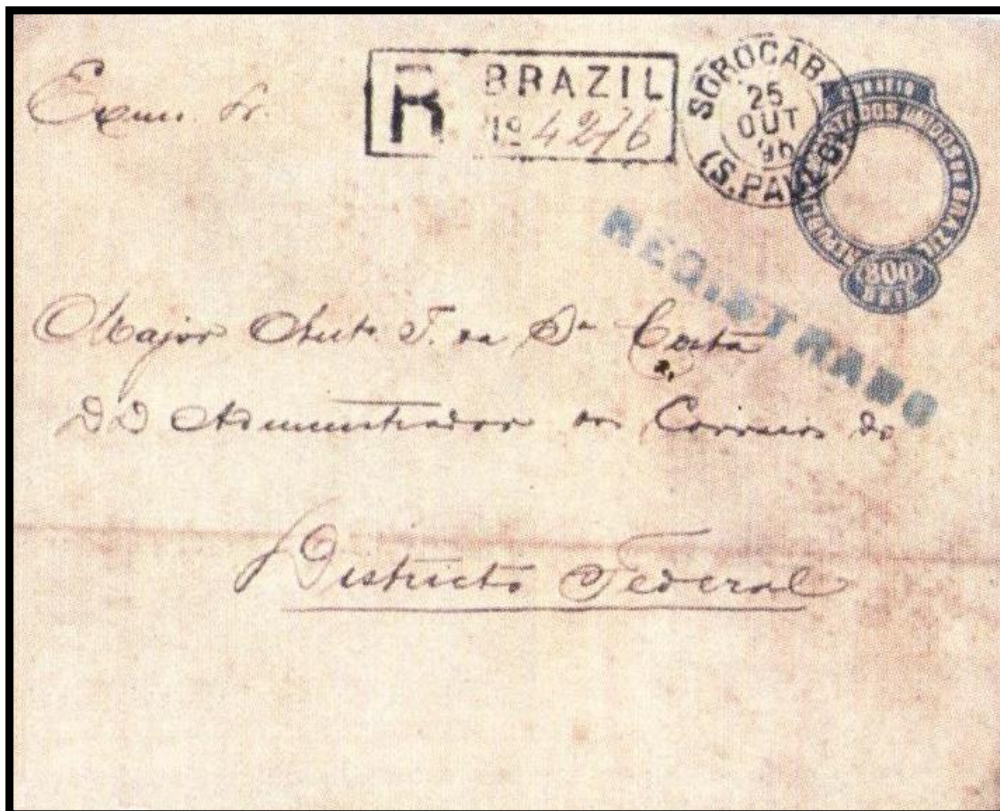 Exmo. Sr.
R BRAZIL
Nº 4276
SOROCABA
25
OUT
96
(S. PAULO)
ESTADOS UNIDOS DO BRAZIL
300
REIS
REGISTRADO
Major Anto. F. da Sa. Costa
DD Administrador dos Correios do
Districto Federal